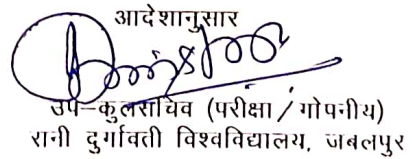 आदेशानुसार
उप-कुलसचिव (परीक्षा / गोपनीय)
रानी दुर्गावती विश्वविद्यालय, जबलपुर